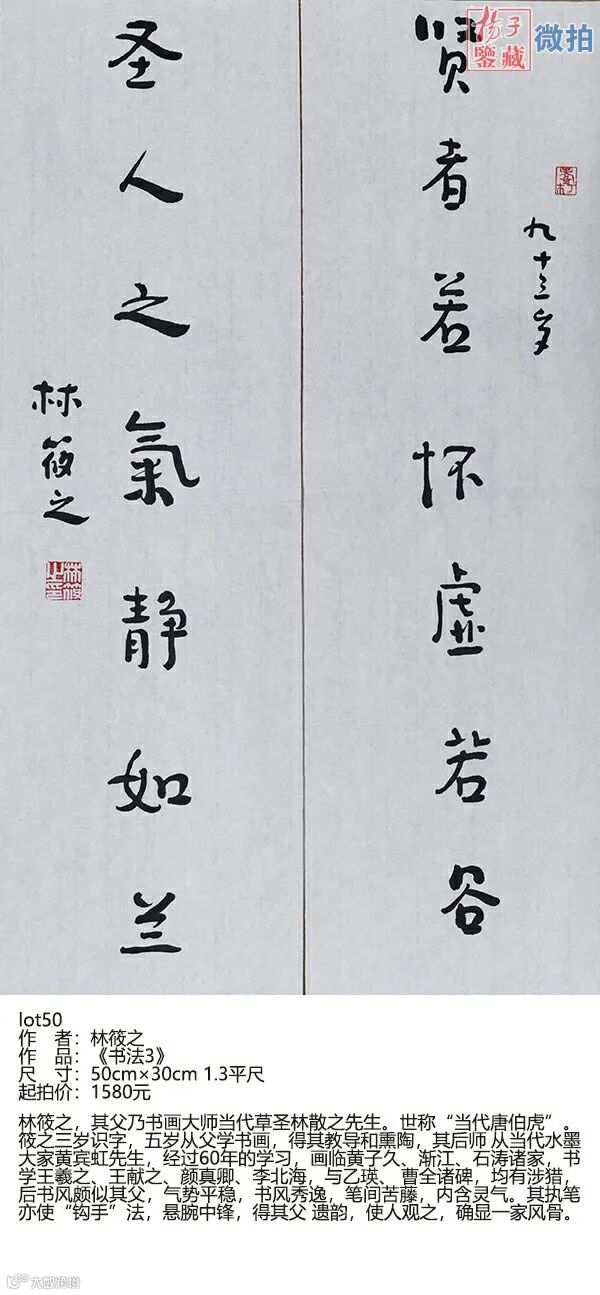 扬子
鉴藏
微拍
九十三岁
贤者若怀虚若谷
圣人之氣静如兰
林筱之
林筱之印
lot50
作 者：林筱之
作 品：《书法3》
尺 寸：50cm×30cm 1.3平尺
起拍价：1580元
林筱之，其父乃书画大师当代草圣林散之先生。世称“当代唐伯虎”。
筱之三岁识字，五岁从父学书画，得其教导和熏陶，其后师 从当代水墨
大家黄宾虹先生，经过60年的学习，画临黄子久、渐江、石涛诸家，书
学王羲之、王献之、颜真卿、李北海，与乙瑛、曹全诸碑，均有涉猎，
后书风颇似其父，气势平稳，书风秀逸，笔间苦藤，内含灵气。其执笔
亦使“钩手”法，悬腕中锋，得其父 遗韵，使人观之，确显一家风骨。